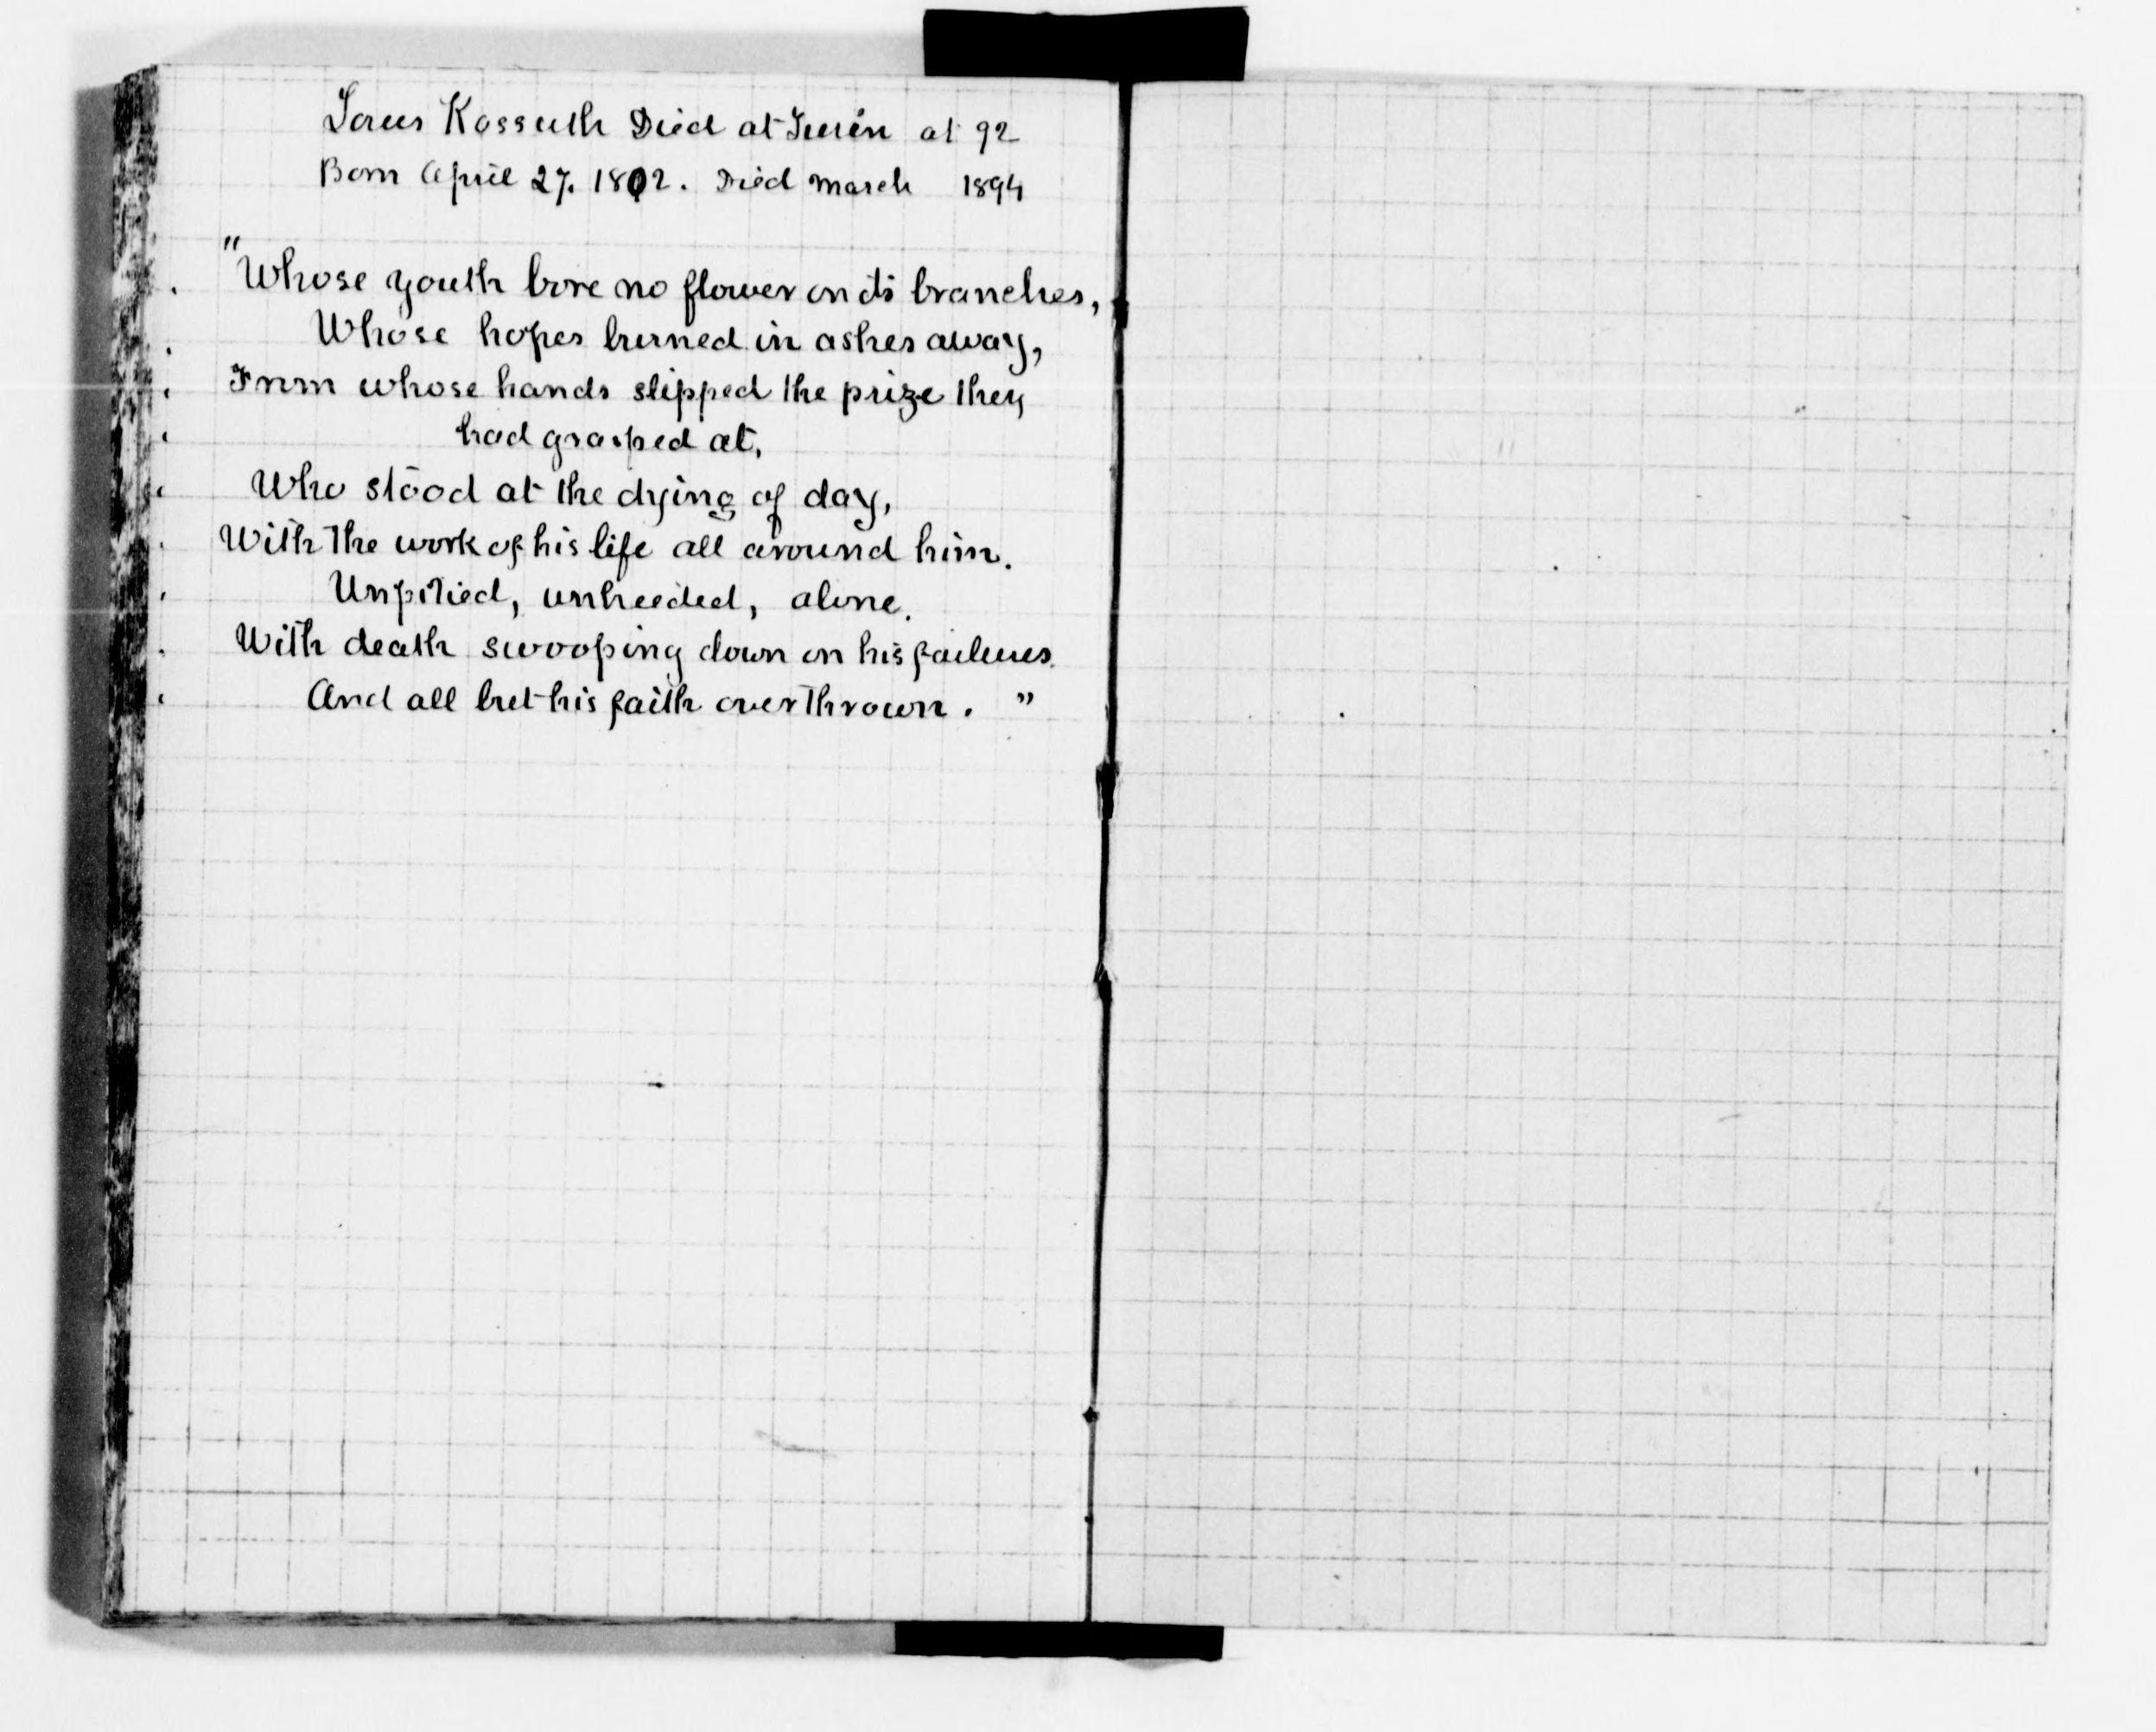 Louis Kossuth Died at Turin at 92
Born April 27. 1802. Died March 1894
"Whose youth bore no flower on its branches,
Whose hopes burned in ashes away,
From whose hands slipped the prize they
had grasped at,
Who stood at the dying of day,
With the work of his life all around him.
Unpitied, unheeded, alone.
With death swooping down on his failures.
And all but his faith overthrown. "